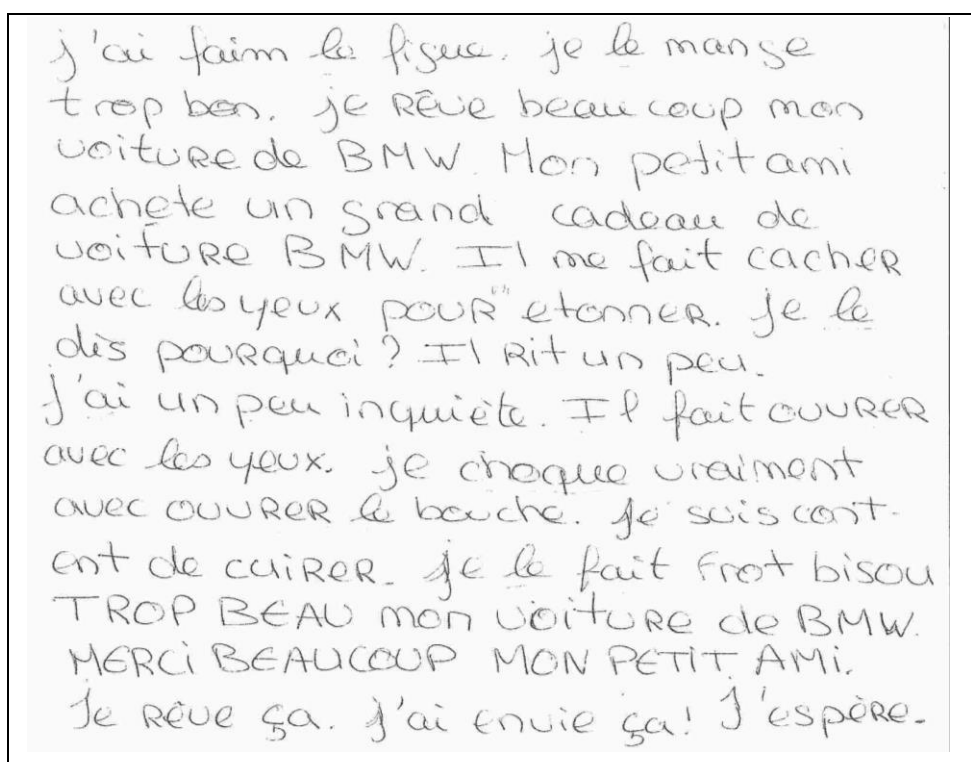 j'ai faim la figue. je le mange
trop bon. je Rêve beaucoup mon
voituRe de BMW. Mon petit ami
achète un grand cadeau de
voituRe BMW. Il me fait cacheR
avec les yeux pouR etonneR. je le
dis pouRquoi ? Il Rit un peu.
j'ai un peu inquiète. Il fait ouvReR
avec les yeux. je choque vraiment
avec ouvReR le bouche. je suis cont-
ent de cuiReR. je le fait frot bisou
TROP BEAU mon voituRe de BMW.
MERCi BEAUCOUP MON PETiT AMi.
Je Rêve ça. j'ai envie ça! J'espèRe.